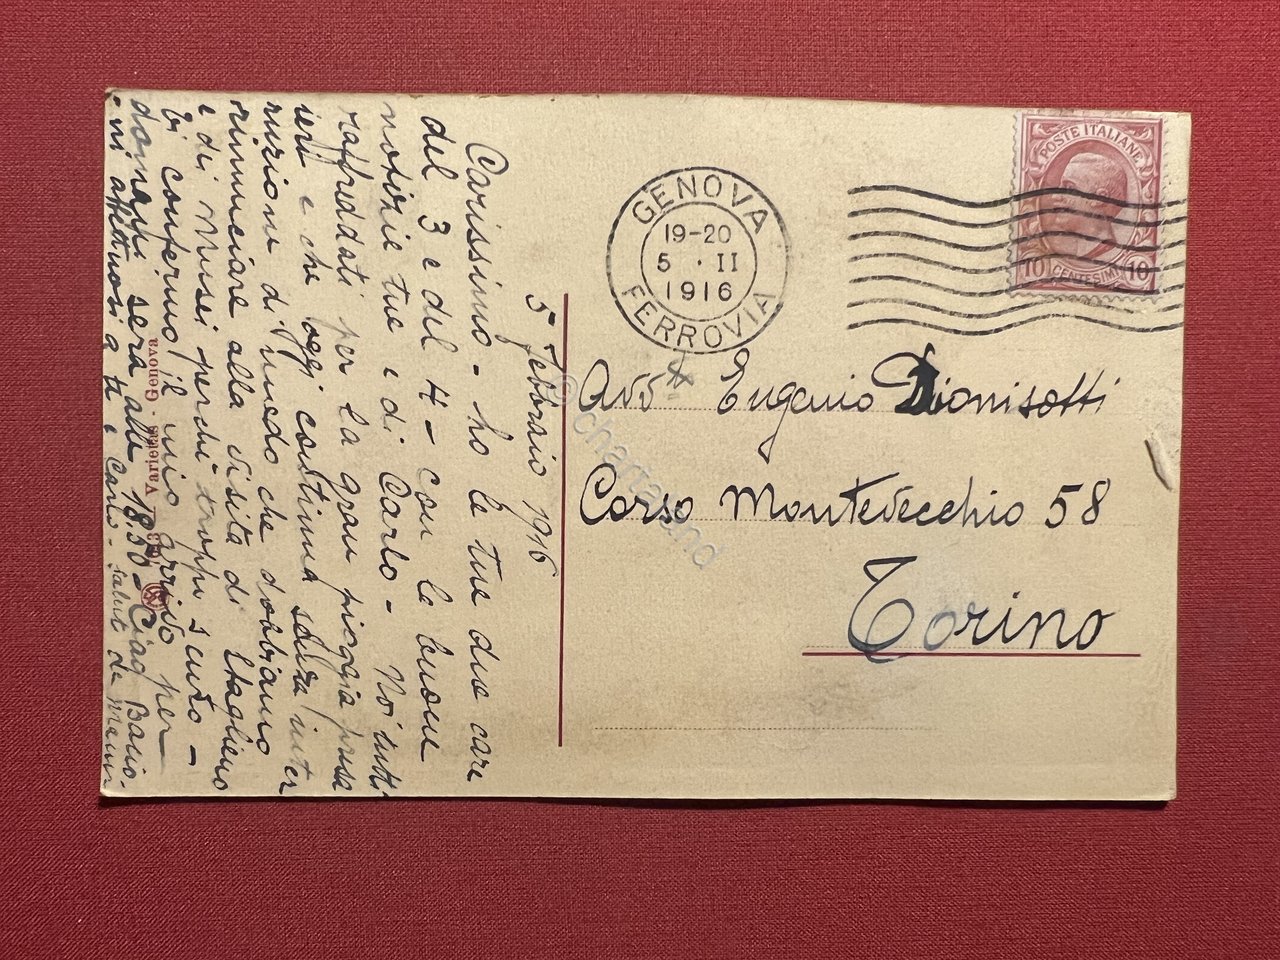 5 febbraio 1916
Carissimo - ho le tue due care
del 3 e del 4 - con le buone
notizie tue e di Carlo - Noi tutti
raffreddati per la gran pioggia presa
ieri e che oggi continua senza inter
ruzione di modo che dobbiamo
rinunciare alla visita di Staglieno
e dei Musei perchè troppo scuro -
Ti confermo il mio arrivo per
domani sera alle 18.50 - Ciao Bacio-
ni affettuosi a te e Carlo - saluti da
GENOVA
FERROVIA
19-20
5 · II
1916
POSTE ITALIANE
10 CENTESIMI 10
Avv Eugenio Dionisotti
Corso Montevecchio 58
Torino
Varietas - Genova
© chartaland